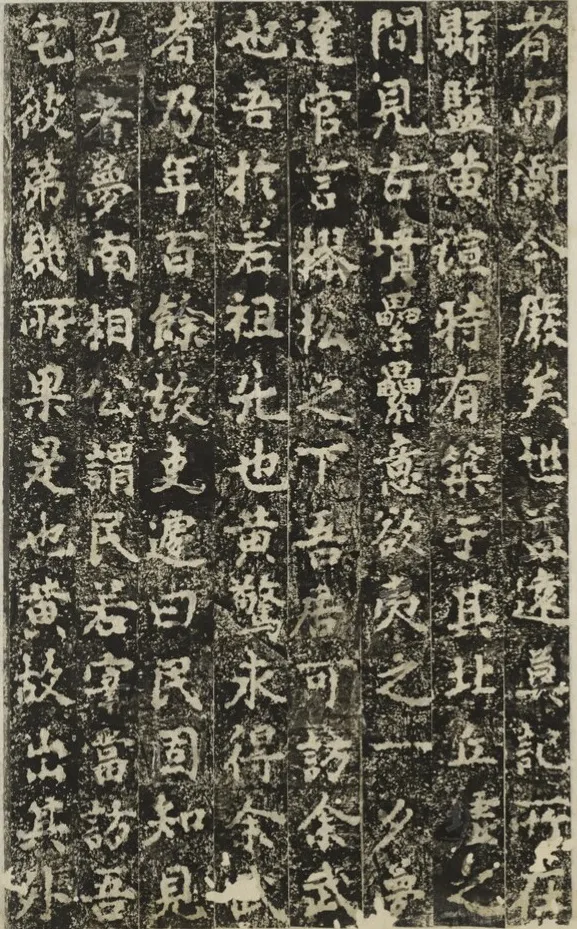 者而衙今廢矣世益遠莫記所在
縣監黃瑄時有築于其北丘之
間見古墳纍纍意欲夷之一夕夢
達官言櫸松之下吾居可訪余武
也吾於若祖先也黃驚求得余武
者乃年百餘故吏遽曰民固知見
召者夢南相公謂民若宰當訪吾
宅彼第幾所果是也黃故出其外